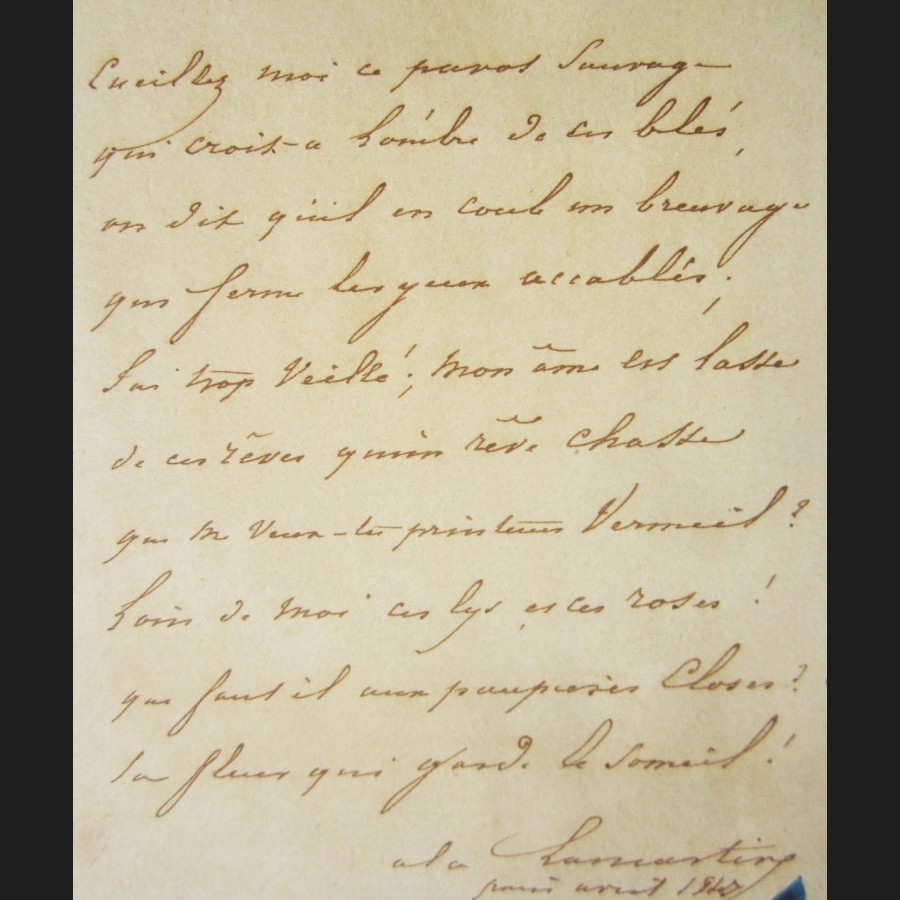 Cueillez moi ce pavot Sauvage
qui croit a l'ombre de ces blés,
on dit qu'il en coule un breuvage
qui ferme les yeux accablés;
J'ai trop Veillé; mon âme est lasse
de ces rêves qu'un rêve chasse
que me veux-tu printems Vermeil ?
Loin de moi ces lys et ces roses !
que faut il aux paupieres Closes ?
la fleur qui garde le someil !
Lamartine
paris avril